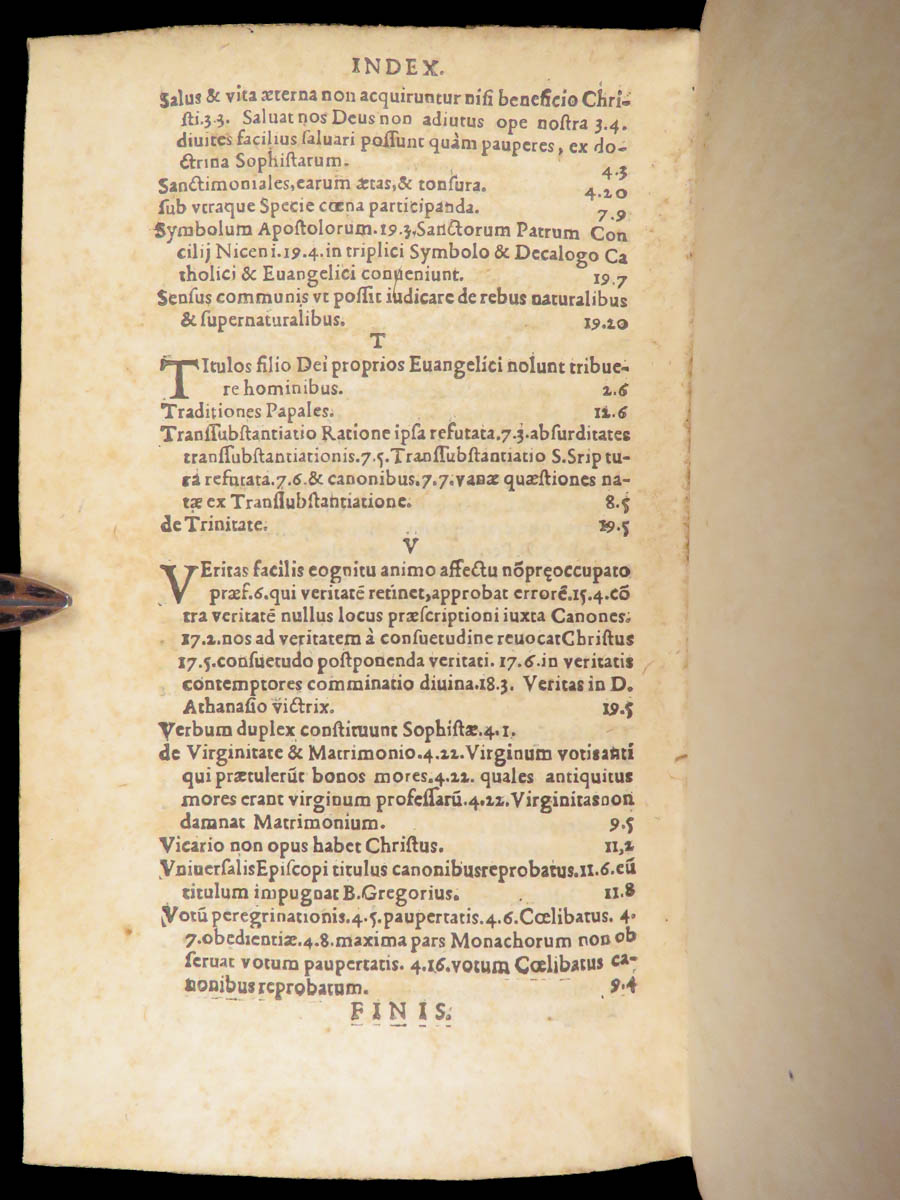 INDEX.
Salus & vita æterna non acquiruntur niſi beneficio Chri-
ſti.3.3. Saluat nos Deus non adiutus ope noſtra 3.4.
diuites facilius ſaluari poſſunt quàm pauperes, ex do-
ctrina Sophiſtarum. 4.3
Sanctimoniales, earum ætas, & tonſura. 4.20
ſub vtraque Specie cœna participanda. 7.9
Symbolum Apoſtolorum.19.3.Sanctorum Patrum Con
cilij Niceni.19.4.in triplici Symbolo & Decalogo Ca
tholici & Euangelici conueniunt. 19.7
Senſus communis vt poſſit iudicare de rebus naturalibus
& ſupernaturalibus. 19.20
T
TItulos filio Dei proprios Euangelici nolunt tribue-
re hominibus. 2.6
Traditiones Papales. 12.6
Tranſſubſtantiatio Ratione ipſa refutata.7.3.abſurditates
tranſſubſtantiationis.7.5.Tranſſubſtantiatio S.Srip tu-
ra refutata.7.6.& canonibus.7.7.vanæ quæſtiones na-
tæ ex Tranſſubſtantiatione. 8.5
de Trinitate. 19.5
V
VEritas facilis cognitu animo affectu nõpręoccupato
præf.6.qui veritatē retinet,approbat errorē.15.4.cō
tra veritatē nullus locus præſcriptioni iuxta Canones.
17.2.nos ad veritatem à conſuetudine reuocatChriſtus
17.5.conſuetudo poſtponenda veritati. 17.6.in veritatis
contemptores comminatio diuina.18.3. Veritas in D.
Athanaſio victrix. 19.5
Verbum duplex conſtituunt Sophiſtæ.4.1.
de Virginitate & Matrimonio.4.22.Virginum votisanti
qui prætulerūt bonos mores.4.22. quales antiquitus
mores erant virginum profeſſarū.4.22.Virginitasnon
damnat Matrimonium. 9.5
Vicario non opus habet Chriſtus. 11,2
VniuerſalisEpiſcopi titulus canonibusreprobatus.11.6.eū
titulum impugnat B.Gregorius. 11.8
Votū peregrinationis.4.5.paupertatis.4.6.Cœlibatus. 4.
7.obedientiæ.4.8.maxima pars Monachorum non ob
ſeruat votum paupertatis. 4.16.votum Cœlibatus ca-
nonibus reprobatum. 9.4
FINIS.